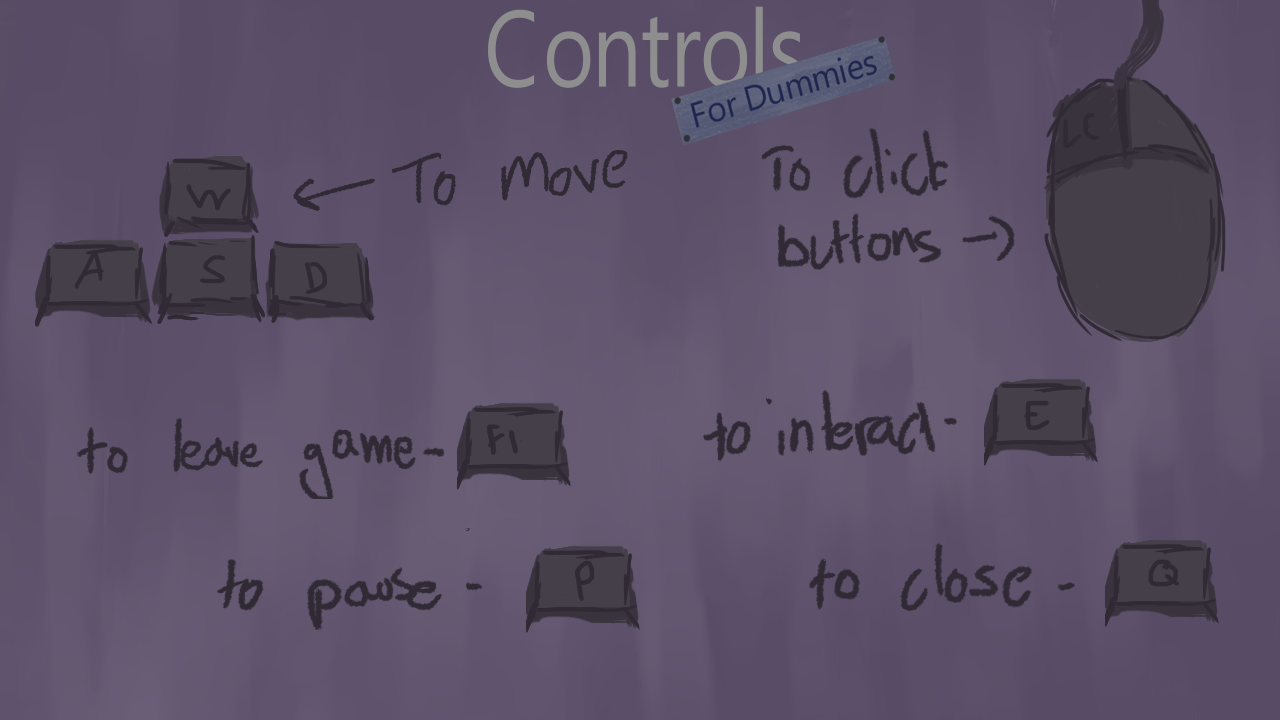 Controls
For Dummies
W
A S D
To move
To click
buttons
LC
to leave game- F1
to interact- E
to pause - P
to close - Q